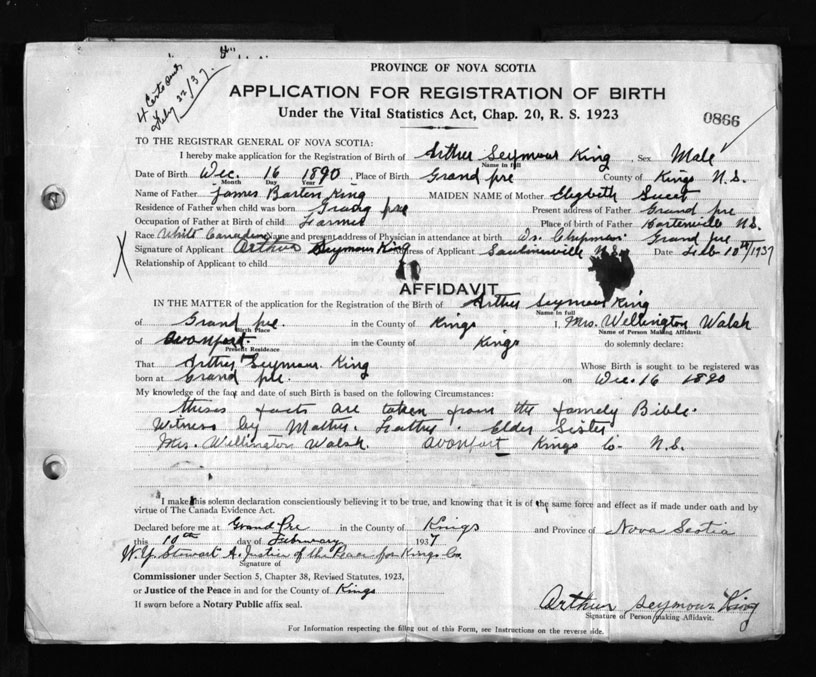 4 Certs Sent
July 22/37.
PROVINCE OF NOVA SCOTIA
APPLICATION FOR REGISTRATION OF BIRTH
Under the Vital Statistics Act, Chap. 20, R. S. 1923
0866
TO THE REGISTRAR GENERAL OF NOVA SCOTIA:
I hereby make application for the Registration of Birth of Arthur Seymour King, Sex Male
Name in full
Date of Birth Dec. 16 1890, Place of Birth Grand pre County of Kings N.S.
Month Day Year
Name of Father James Barten King MAIDEN NAME of Mother Elizbeth
Residence of Father when child was born Grand pre Present address of Father Grand pre
Occupation of Father at Birth of child Farmer Place of birth of Father Hortenville N.S.
Race White Canadian Name and present address of Physician in attendance at birth Dr. Chipman Grand pre
Signature of Applicant Arthur Seymour King Address of Applicant Saulnierville N.S. Date Feb 10th/1937
Relationship of Applicant to child
AFFIDAVIT
IN THE MATTER of the application for the Registration of the Birth of Arthur Seymour King
Name in full
of Grand pre. in the County of Kings I, Mrs. Wellington Walsh
Birth Place Name of Person Making Affidavit
of Avonport. in the County of Kings do solemnly declare:
Present Residence
That Arthur Seymour King Whose Birth is sought to be registered was
born at Grand pre. on Dec. 16 1890
My knowledge of the fact and date of such Birth is based on the following Circumstances:
theses facts are taken from the famely Bible.
Witness by Mother. Father. Elder Sister
Mrs. Wellington Walsh. Avonport Kings Co. N.S.
I make this solemn declaration conscientiously believing it to be true, and knowing that it is of the same force and effect as if made under oath and by
virtue of The Canada Evidence Act.
Declared before me at Grand Pre in the County of Kings and Province of Nova Scotia
this 10th day of February 1937
W. Y. Stewart A. Justice of the Peace for Kings Co.
Signature of
Commissioner under Section 5, Chapter 38, Revised Statutes, 1923,
or Justice of the Peace in and for the County of Kings
If sworn before a Notary Public affix seal.
Arthur Seymour King
Signature of Person making Affidavit.
For Information respecting the filling out of this Form, see Instructions on the reverse side.